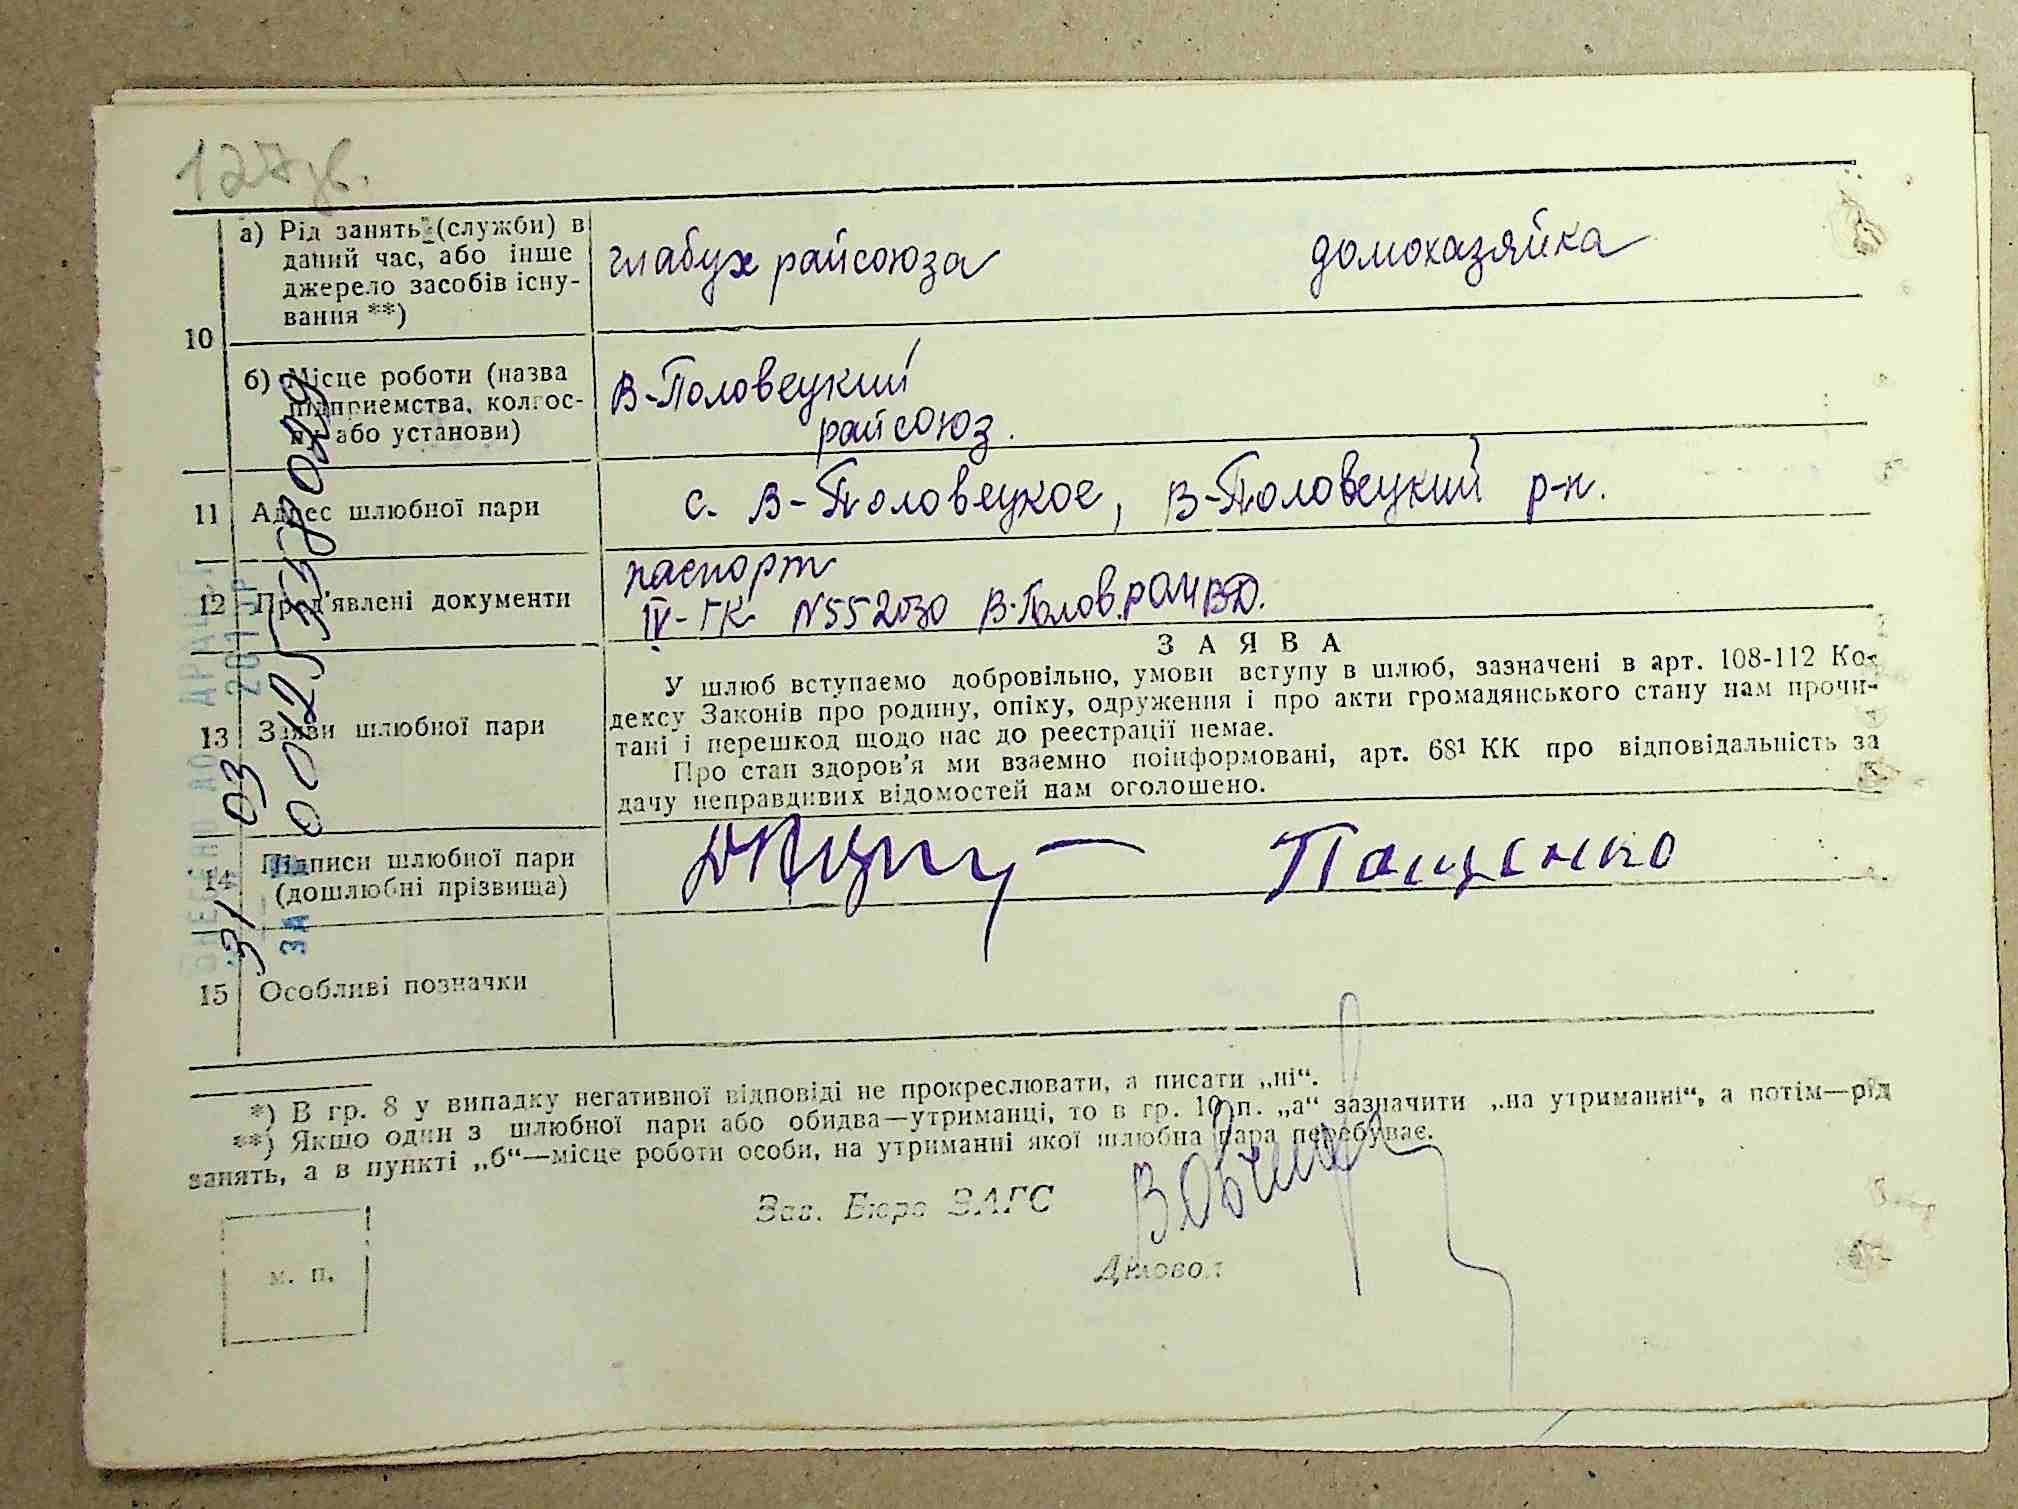 127 зв.
10
а) Рід занять (служби) в
даний час, або інше
джерело засобів існу-
вання **)
главбух райсоюза
домохазяйка
б) Місце роботи (назва
підприемства, колгос-
пу або установи)
В-Половецкий
райсоюз.
11 Адрес шлюбної пари
с. В-Половецкое, В-Половецкий р-н.
12 Пред'явлені документи
паспорт
IV-ГК N552030 В-Полов.РОМВД.
13 Заяви шлюбної пари
ЗАЯВА
У шлюб вступаємо добровільно, умови вступу в шлюб, зазначені в арт. 108-112 Ко-
дексу Законів про родину, опіку, одруження і про акти громадянського стану нам прочи-
тані і перешкод щодо нас до реєстрації немає.
Про стан здоров'я ми взаємно поінформовані, арт. 68¹ КК про відповідальність за
дачу неправдивих відомостей нам оголошено.
14 Підписи шлюбної пари
(дошлюбні прізвища)
Пащенко
15 Особливі позначки
*) В гр. 8 у випадку негативної відповіді не прокреслювати, а писати „ні“.
**) Якщо один з шлюбної пари або обидва—утриманці, то в гр. 10 п. „а“ зазначити „на утриманні“, а потім—рід
занять, а в пункті „б“—місце роботи особи, на утриманні якої шлюбна пара перебуває.
Зав. Бюро ЗАГС
Діловод
М. П.
31 03
ЗА